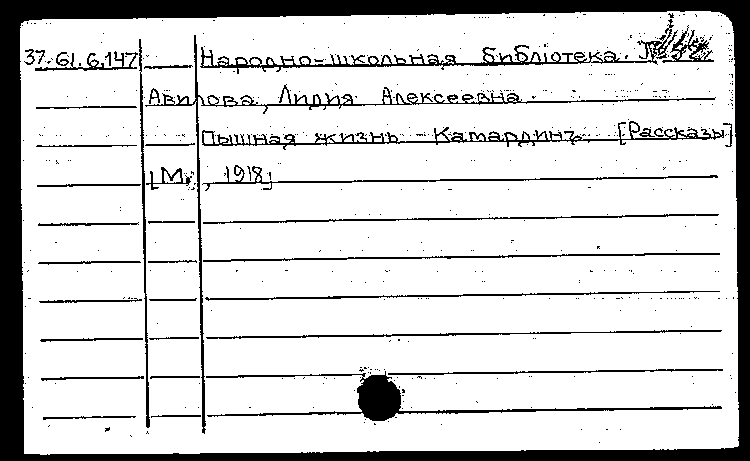 37.61.6.147 Народно-школьная библіотека. № 52
Авилова, Лидия Алексеевна.
Пышная жизнь - Камардинъ. [Рассказы]
[М., 1918]